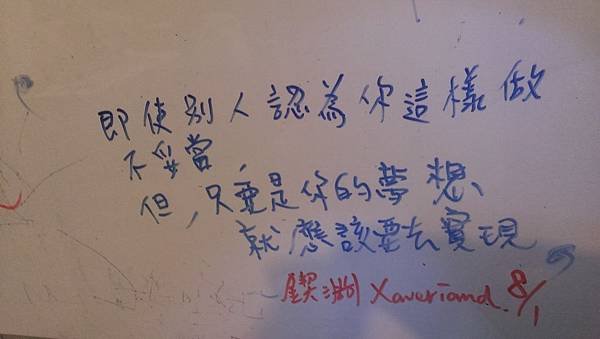 即使別人認為你這樣做
不妥當,
但,只要是你的夢想、
就應該要去實現
Xaveriamd 8/1